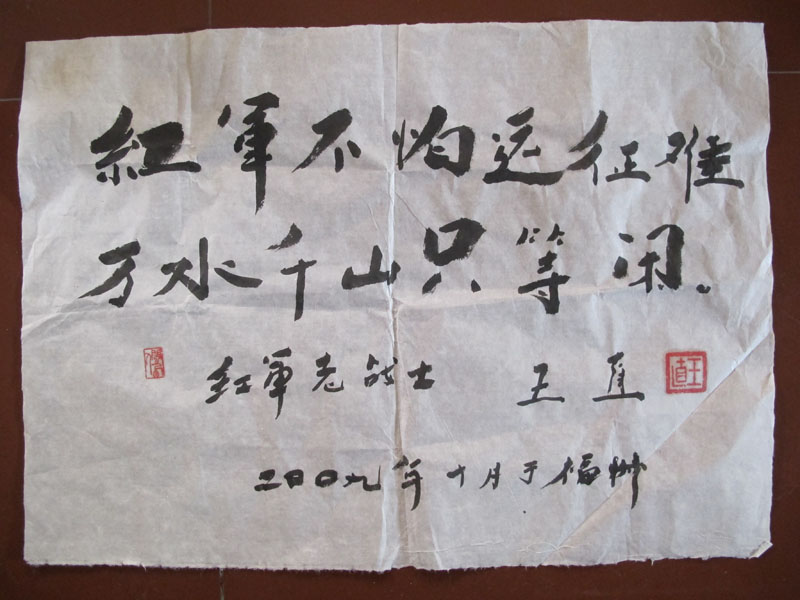 紅軍不怕远征难
万水千山只等闲。
红軍老战士 王直
王直
二〇〇九年十月于福州